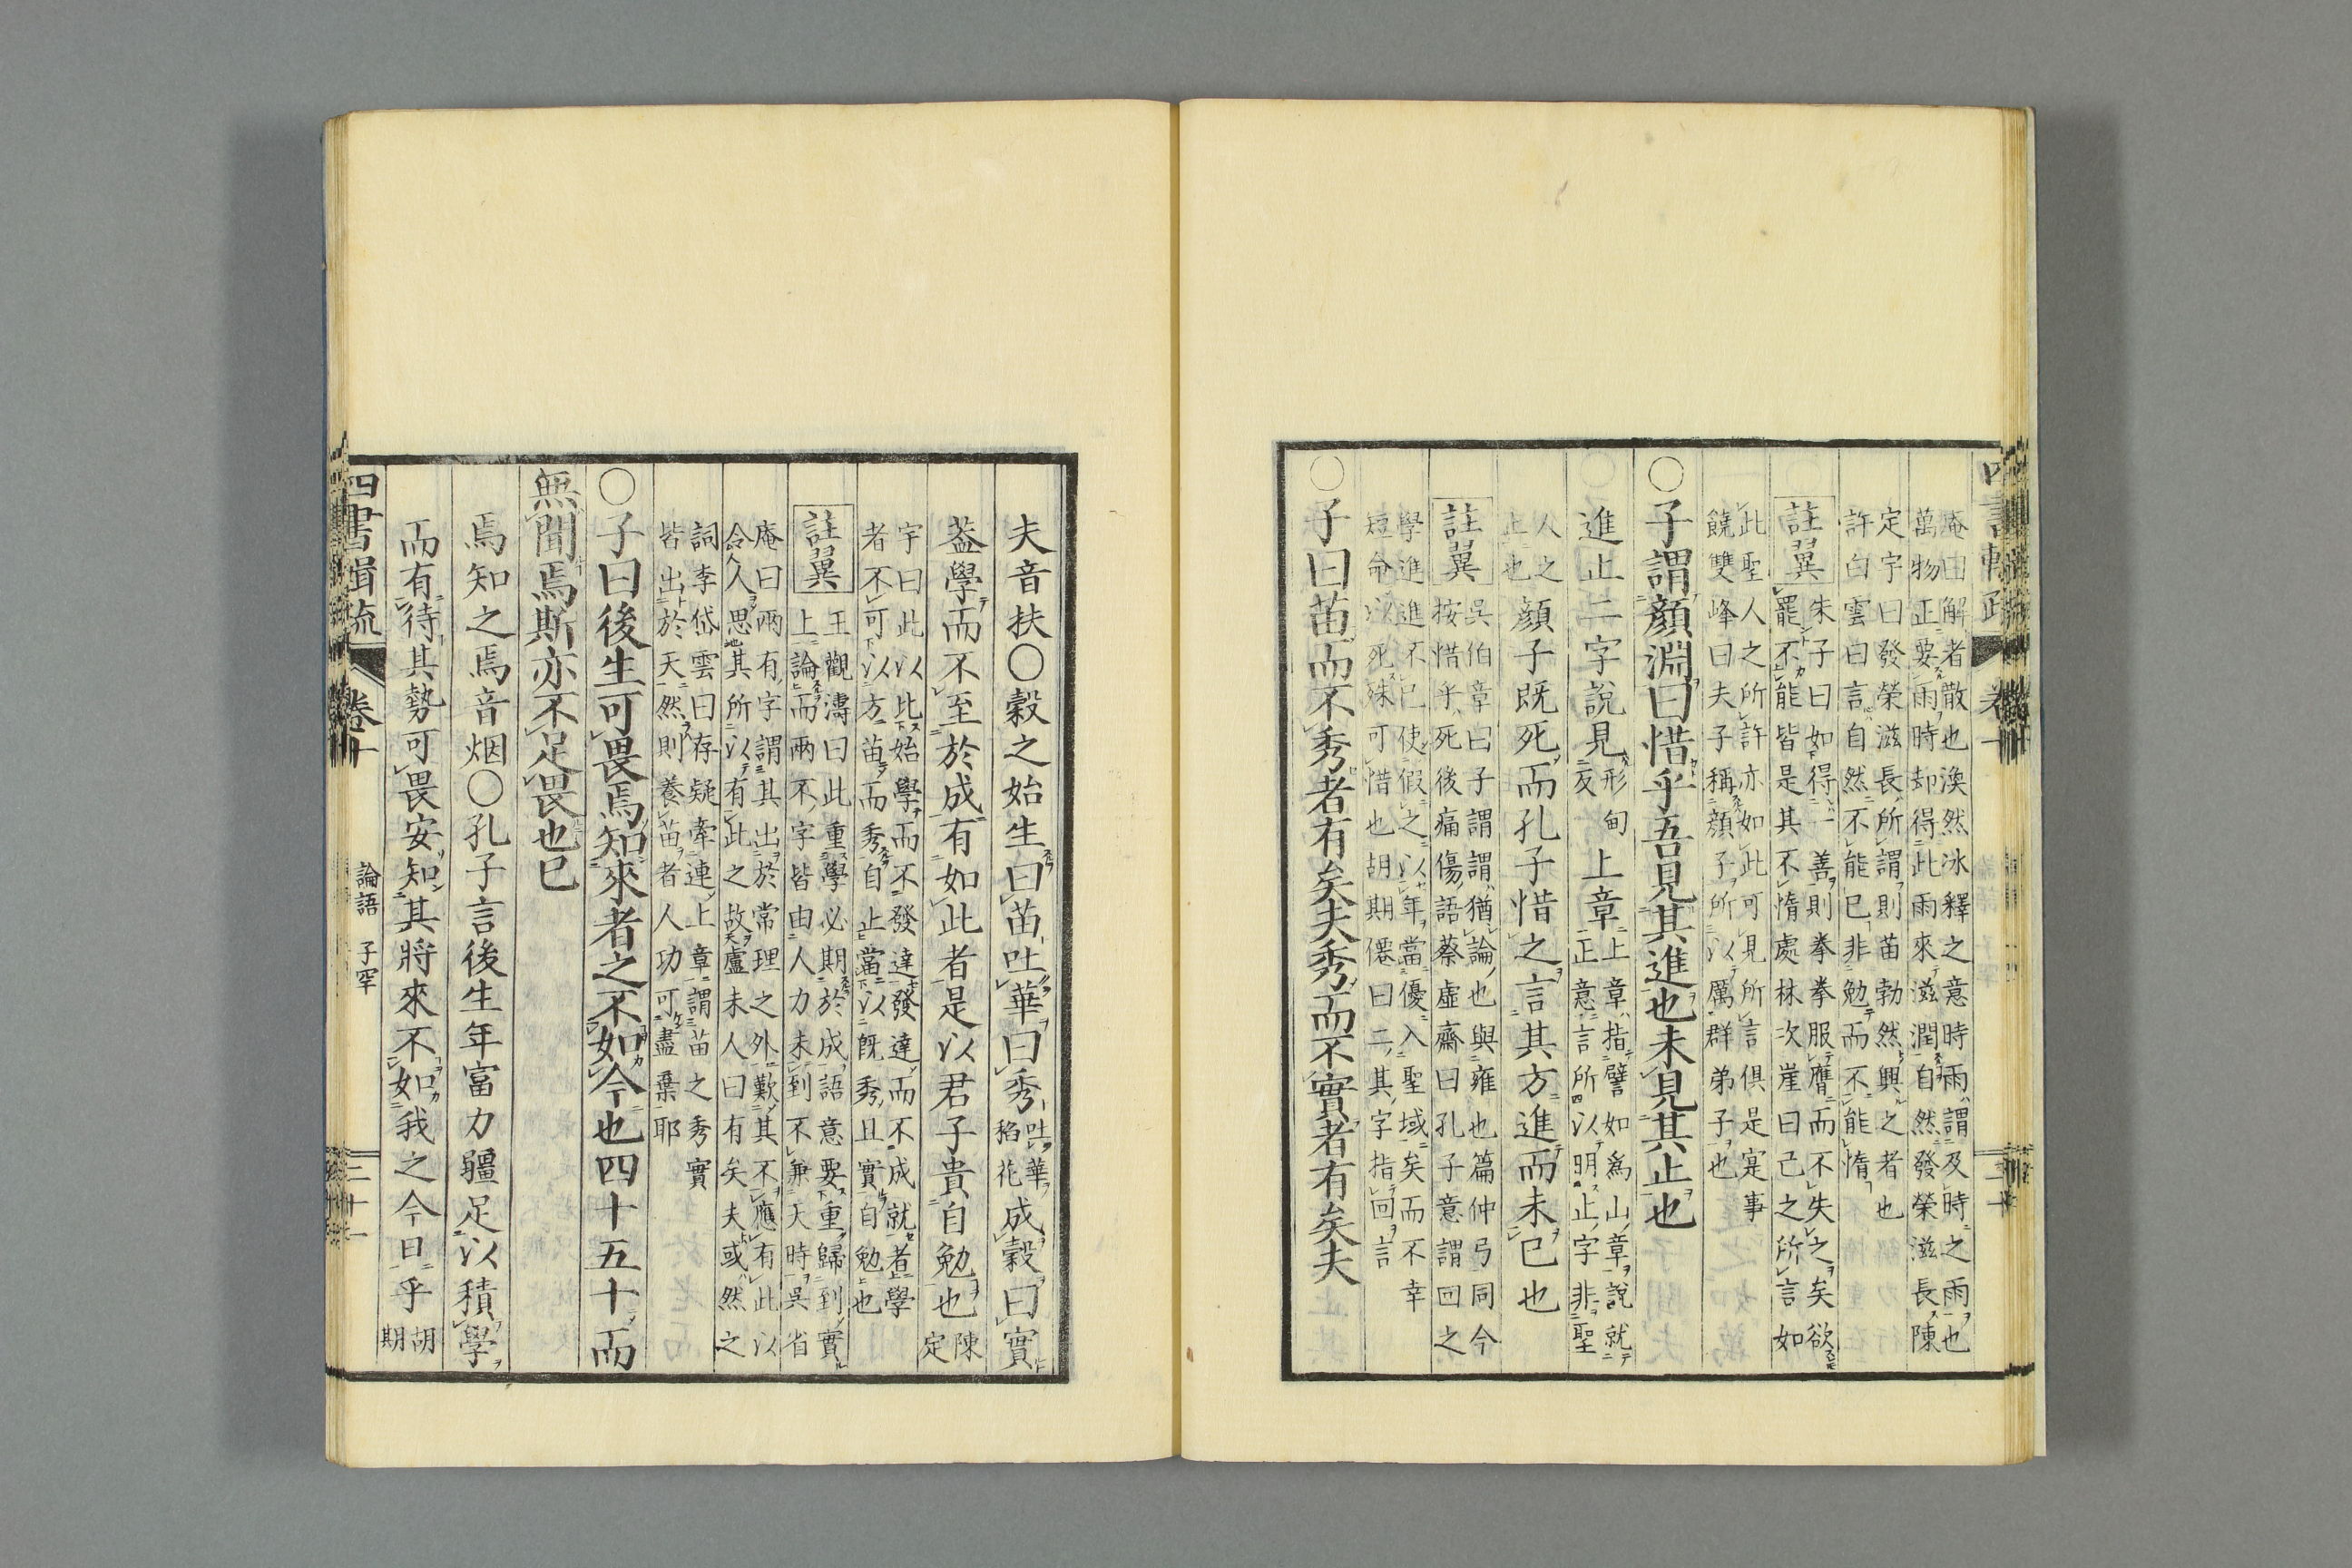 庵曰解者散也渙然冰釋之意時雨謂及時之雨也
萬物正要雨時却得此雨來滋潤自然發榮滋長陳
定宇曰發榮滋長所謂則苗勃然興之者也
許白雲曰言自然不能已非勉而不能惰
註翼
朱子曰如得一善則拳拳服膺而不失之矣欲
罷不能皆是其不惰處林次崖曰己之所言如
此聖人之所許亦如此可見所言俱是寔事
饒雙峰曰夫子稱顔子所以厲群弟子也
○子謂顔淵曰惜乎吾見其進也未見其止也
進止二字說見
形甸
反
上章
上章指譬如爲山章說就
正意言所以明止字非聖
人之
止也
顔子既死而孔子惜之言其方進而未已也
註翼
吳伯章曰子謂謂猶論也與雍也篇仲弓同今
按惜乎死後痛傷語蔡虛齋曰孔子意謂回之
學進進不已使假之以年當優入聖域矣而不幸
短命以死殊可惜也胡期僊曰二其字指回言
○子曰苗而不秀者有矣夫秀而不實者有矣夫
夫音扶○穀之始生曰苗吐華曰秀
吐華
稻花
成穀曰實
葢學而不至於成有如此者是以君子貴自勉也
陳
定
宇曰此以比始學而不發達發達而不成就者學
者不可以方苗而秀自止當以既秀且實自勉也
註翼
王觀濤曰此重學必期於成語意要重歸到實
上論而兩不字皆由人力未到不兼天時吳省
庵曰兩有字謂其出於常理之外歎其不應有此以
人思其所以有此之故盧未人曰有矣夫或然之
詞李岱雲曰存疑牽連上章謂苗之秀實
皆出於天然則養苗者人功可盡棄耶
○子曰後生可畏焉知來者之不如今也四十五十而
無聞焉斯亦不足畏也已
焉知之焉音烟○孔子言後生年富力疆足以積學
而有待其勢可畏安知其將來不如我之今日乎
胡
期
四書輯疏
卷十
論語
子罕
三十一